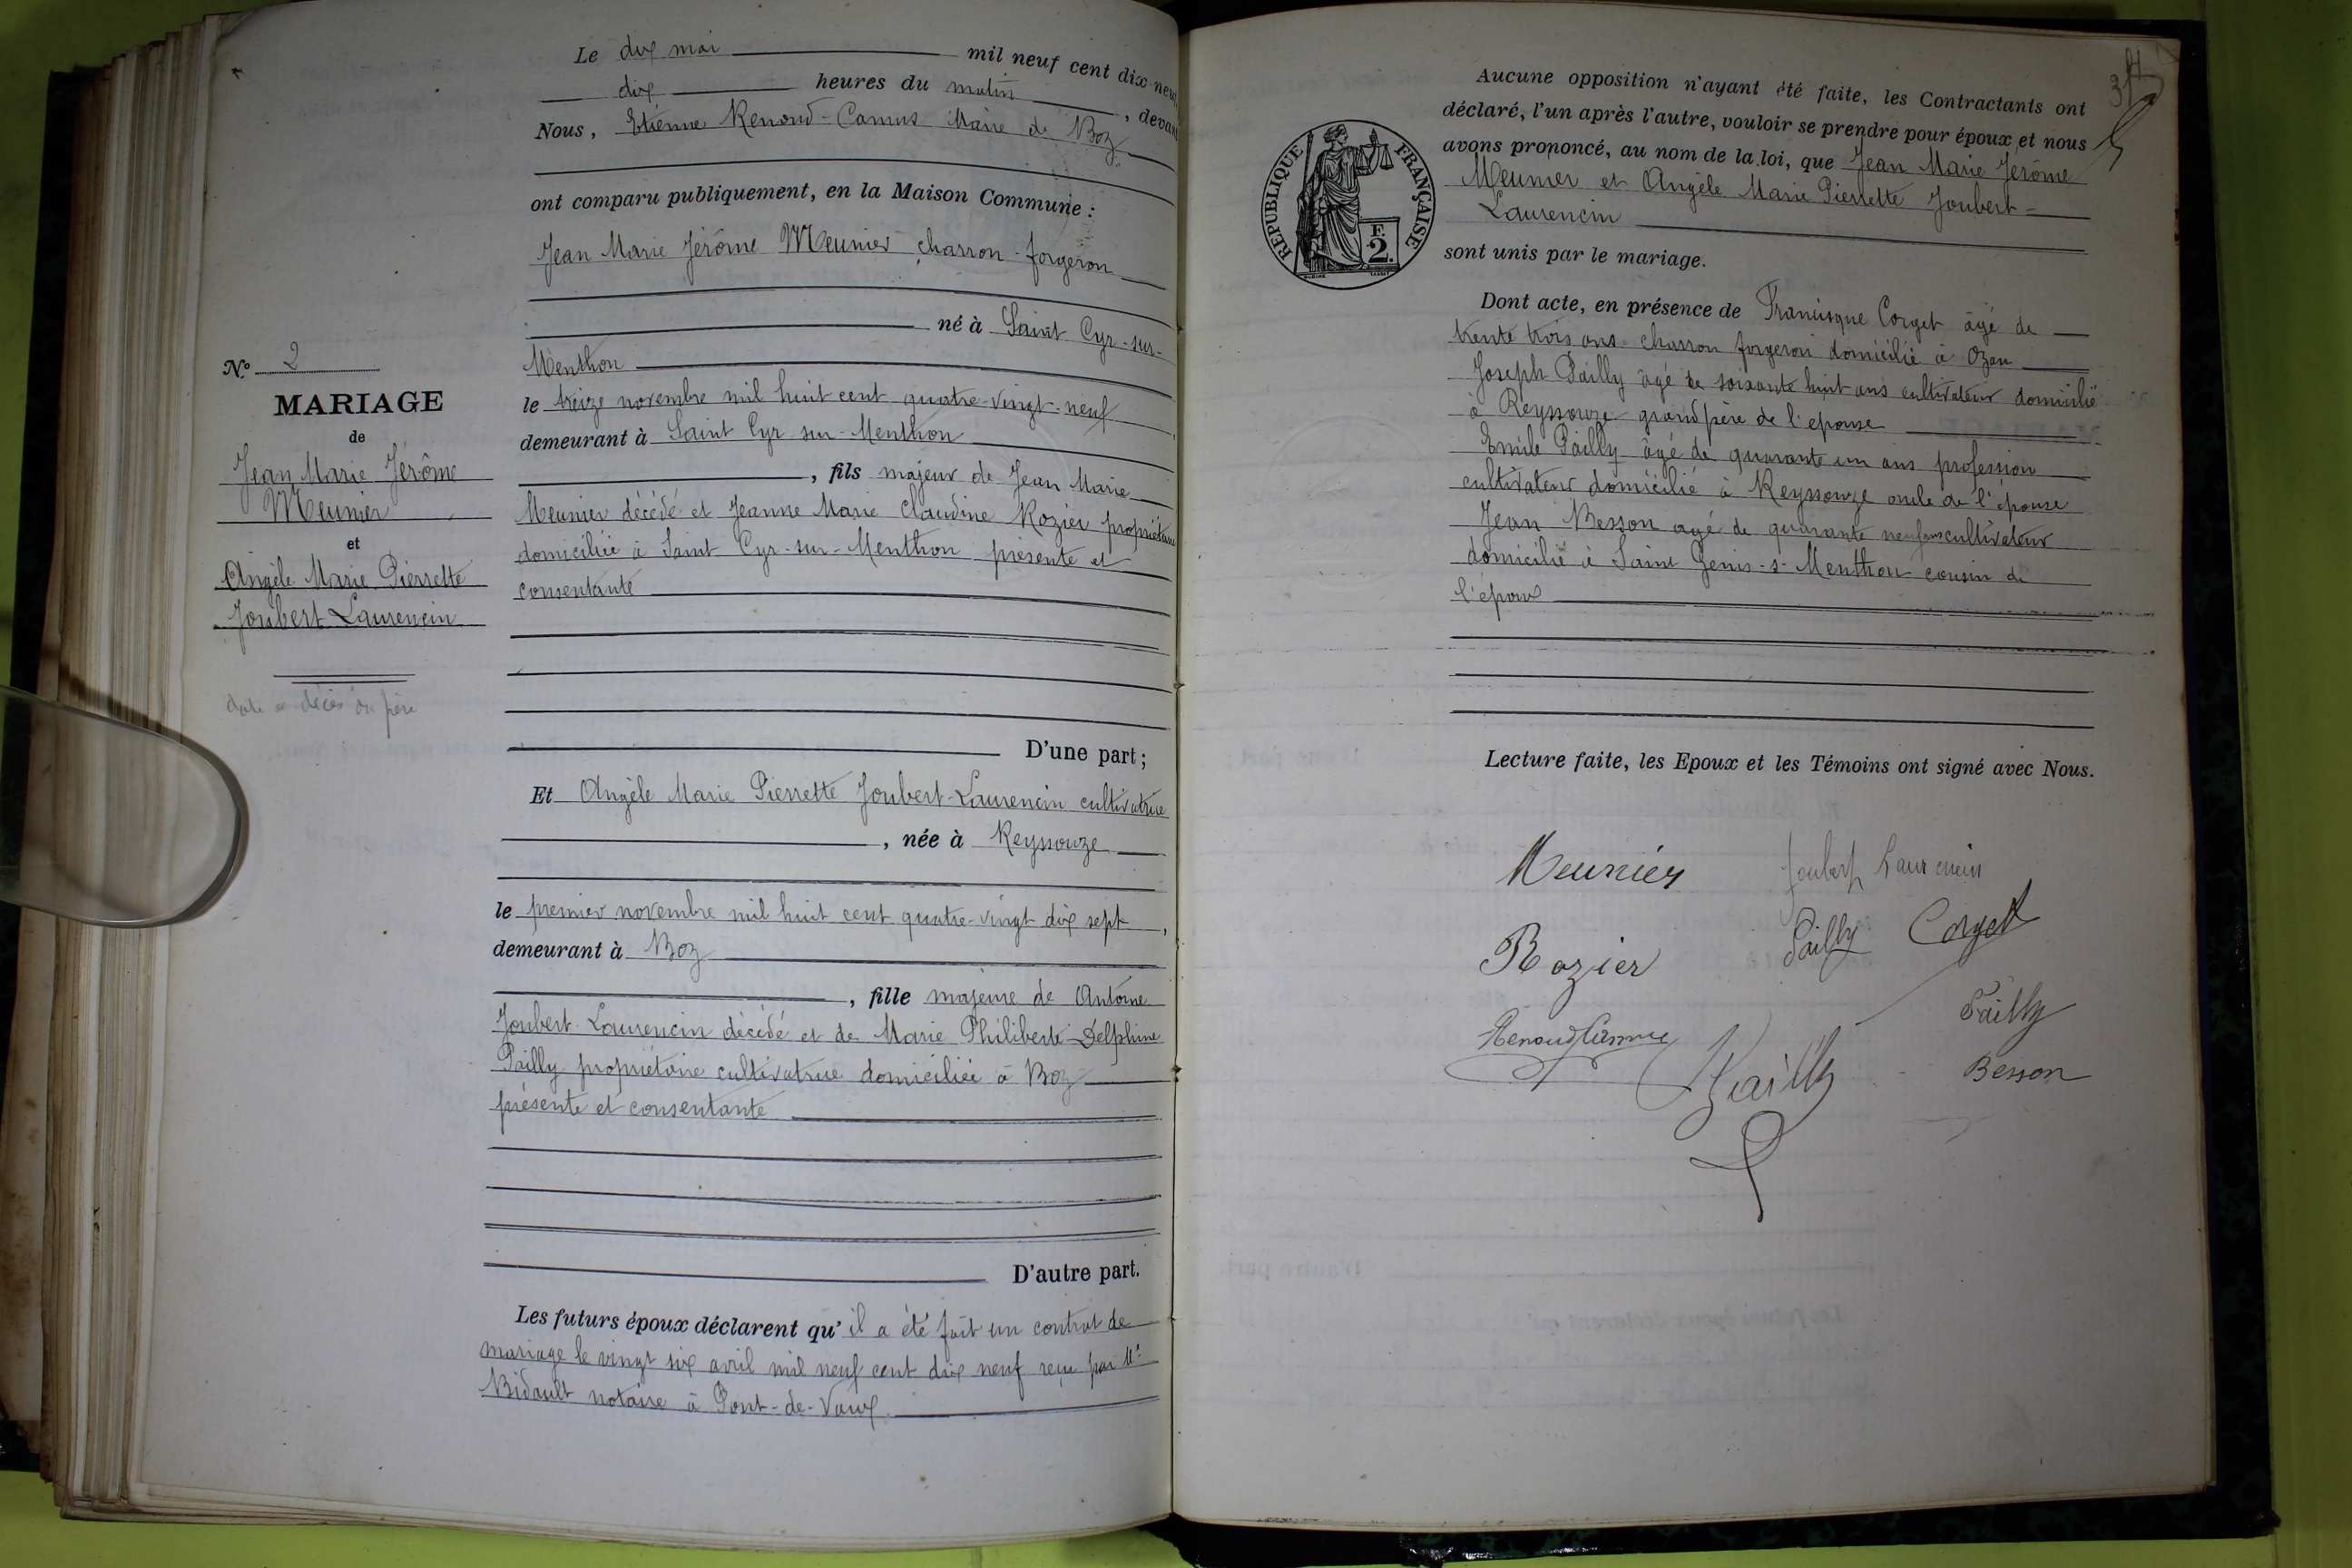 Le dix mai mil neuf cent dix-neuf
dix heures du matin, devant
Nous, Etienne Renoud-Camus Maire de Boz
ont comparu publiquement, en la Maison Commune :
Jean Marie Jérôme Meunier charron-forgeron
né à Saint Cyr-sur-
Menthon
le treize novembre mil huit cent quatre-vingt-neuf
demeurant à Saint Cyr sur-Menthon
, fils majeur de Jean Marie
Meunier décédé et Jeanne Marie Claudine Rozier propriétaire
domiciliée à Saint Cyr-sur-Menthon présente et
consentante
D'une part ;
Et Angèle Marie Pierrette Joubert-Laurencin cultivatrice
, née à Reyssouze
le premier novembre mil huit cent quatre-vingt dix sept,
demeurant à Boz
, fille majeure de Antoine
Joubert-Laurencin décédé et de Marie Philiberte Delphine
Pailly propriétaire cultivatrice domiciliée à Boz
présente et consentante
D'autre part.
Les futurs époux déclarent qu'il a été fait un contrat de
mariage le vingt six avril mil neuf cent dix neuf reçu par Me
Bidault notaire à Pont-de-Vaux
N° 2
MARIAGE
de
Jean Marie Jérôme
Meunier
et
Angèle Marie Pierrette
Joubert Laurencin
date décès du père
Aucune opposition n'ayant été faite, les Contractants ont
déclaré, l'un après l'autre, vouloir se prendre pour époux et nous
avons prononcé, au nom de la loi, que Jean Marie Jérôme
Meunier et Angèle Marie Pierrette Joubert-
Laurencin
sont unis par le mariage.
REPUBLIQUE FRANÇAISE
F.
2.
Dont acte, en présence de Francisque Corget âgé de
trente trois ans charron forgeron domicilié à Ozan
Joseph Pailly âgé de soixante huit ans cultivateur domicilié
à Reyssouze grand père de l'épouse
Emile Pailly âgé de quarante un ans profession
cultivateur domicilié à Reyssouze oncle de l'épouse
Jean Besson agé de quarante neuf ans cultivateur
domicilié à Saint Genis-s-Menthon cousin de
l'époux
Lecture faite, les Epoux et les Témoins ont signé avec Nous.
Meunier Joubert Laurencin
Rozier Pailly Corget
Renoud Camus Pailly Pailly
Besson